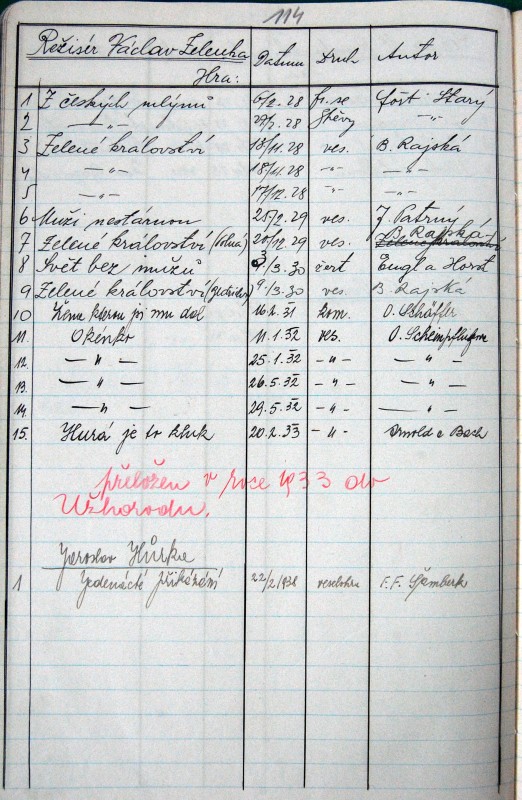 114
Režisér Václav Zelenka Datum Druh Autor
Hra:
1 Z českých mlýnů 6/2. 28 fr. se Fořt - Starý
2 —"— 29/2. 28 zpěvy —"—
3 Zelené království 18/11. 28 ves. B. Rajská
4 —"— 18/11. 28 —"— —"—
5 —"— 17/12. 28 —"— —"—
6 Muži nestárnou 25/12. 29 ves. J. Patrný
7 Zelené království 26/12. 29 ves. B. Rajská
8 Svět bez mužů 9/3. 30 žert Engl a Horst
9 Zelené království 9/3. 30 ves. B. Rajská
10 Žena kterou jsi mu dal 16.2. 31 kom. O. Schäffer
11. Okénko 11.1.32 ves. O. Scheinpflugova
12. —"— 25.1.32 —"— —"—
13. —"— 26.5.32 —"— —"—
14. —"— 29.5.32 —"— —"—
15. Hurá je to kluk 20.2.33 —"— Arnold a Bach
přeložen v roce 1933 do
Užhorodu.
Jaroslav Hůrka
1 Jedenácté přikázání 22/2 1936 veselohra F. F. Šamberk